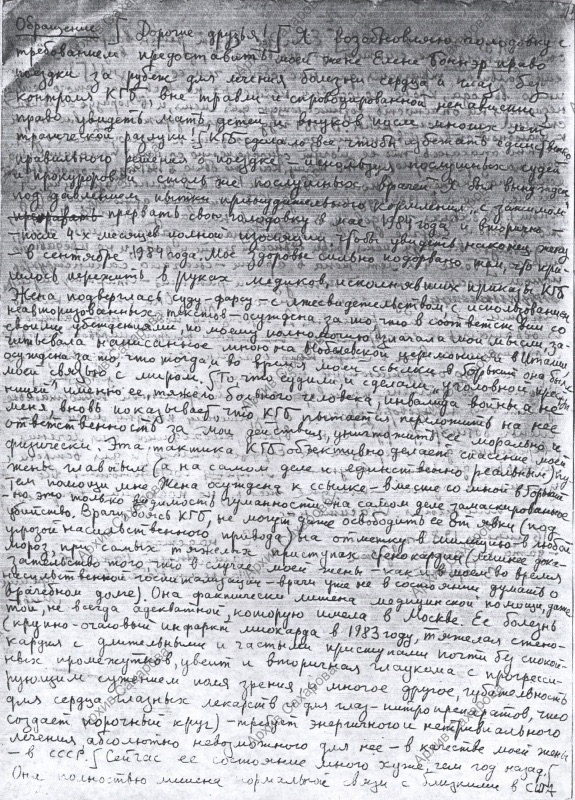 Обращение. [ Дорогие друзья! [ Я возобновляю голодовку с
требованием предоставить моей жене Елене Боннэр право
поездки за рубеж для лечения болезни сердца и глаз без
контроля КГБ, вне травли и спровоцированной ненависти,
право увидеть мать, детей и внуков после многих лет
трагической разлуки! [ КГБ сделало все, чтобы избежать единственно
правильного решения о поездке – используя послушных судей
и прокуроров и столь же послушных врачей. Я был вынужден
под давлением пытки принудительного кормления „с зажимом“
прервать свою голодовку в мае 1984 года и вторично –
– после 4-х месяцев полной изоляции, чтобы увидеть наконец жену
– в сентябре 1984 года. Мое здоровье сильно подорвано тем, что при-
шлось пережить в руках медиков, исполнявших приказы КГБ
Жена подверглась суду-фарсу – с лжесвидетельством, с использованием
неавторизованных текстов – осуждена за то, что в соответствии со
своими убеждениями, по моему полномочию излагала мои мысли, за-
читывала написанное мною на Нобелевской церемонии и в Италии
осуждена за то, что тогда и во время моей ссылки в Горький она была
моей связью с миром. [ То, что судили и сделали „уголовной прес-
ницей“ именно ее, тяжело больного человека, инвалида войны, а не
меня, вновь показывает, что КГБ пытается переложить на нее
ответственность за мои действия, уничтожить ее морально и
физически. Эта тактика КГБ объективно делает спасение моей
жены главным (а на самом деле и единственно реальным) пу-
тем помощи мне. Жена осуждена к ссылке – вместе со мной в Горький
– но это только видимость гуманности, на самом деле замаскированное
убийство. Врачи, боясь КГБ, не могут даже освободить ее от явки (под
угрозой насильственного привода) на отметку в милицию в любой
мороз, при самых тяжелых приступах стенокардии (лишнее дока-
зательство того, что в случае моей жены – как и в моем во время
насильственной госпитализации – врачи уже не в состоянии думать о
врачебном долге). Она фактически лишена медицинской помощи, даже
той, не всегда адекватной, которую имела в Москве. Ее болезнь
(крупно-очаговый инфаркт миокарда в 1983 году, тяжелая стено-
кардия с длительными и частыми приступами почти без спокой-
ных промежутков, увеит и вторичная глаукома с прогресси-
рующим сужением поля зрения и многое другое, губительность
для сердца глазных лекарств и для глаз – нитропрепаратов, что
создает порочный круг) – требует энергичного и нетривиального
лечения, абсолютно невозможного для нее – в качестве моей жены
– в СССР. [ Сейчас ее состояние много хуже, чем год назад. [
Она полностью лишена нормальной связи с близкими в США
Архив Сахарова